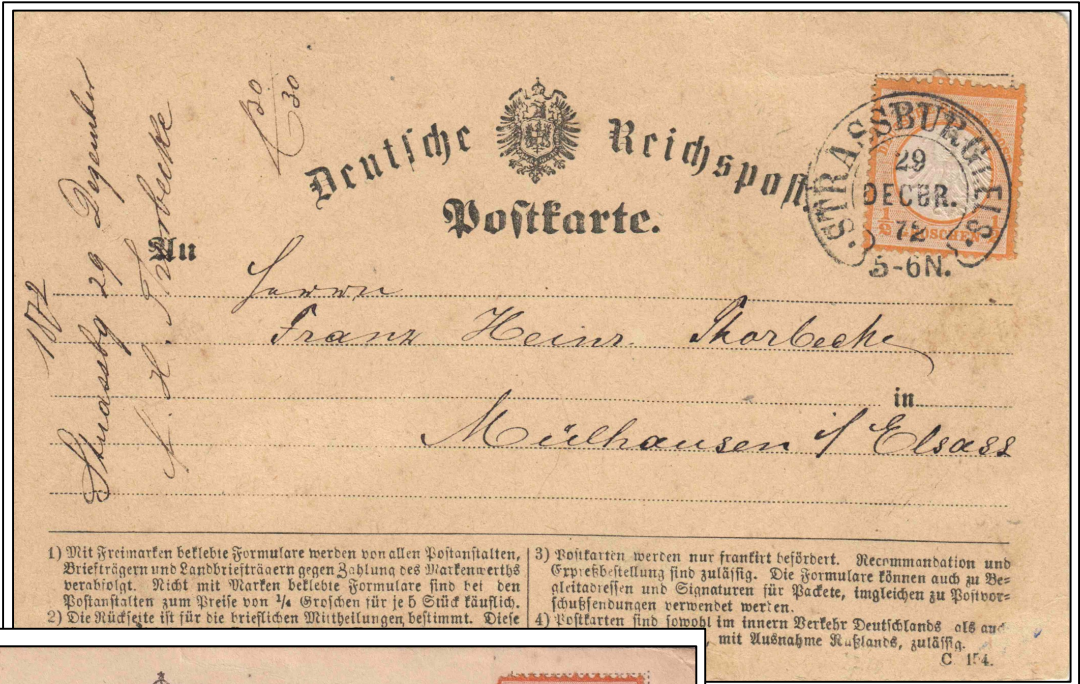 Strassbg 29 Dezember
1872
Deutsche Reichspost.
Postkarte.
STRASSBURG I. ELS.
29
DECBR.
72
5-6N.
½ GROSCHEN
An
Herrn
Franz Heinr. Thorbecke
in
Mülhausen i/ Elsass
1) Mit Freimarken beklebte Formulare werden von allen Postanstalten,
Briefträgern und Landbriefträgern gegen Zahlung des Markenwerths
verabfolgt. Nicht mit Marken beklebte Formulare sind bei den
Postanstalten zum Preise von ¼ Groschen für je 5 Stück käuflich.
2) Die Rückseite ist für die brieflichen Mittheilungen bestimmt. Diese
3) Postkarten werden nur frankirt befördert. Recommandation und
Expreßbestellung sind zulässig. Die Formulare können auch zu Be-
gleitadressen und Signaturen für Packete, imgleichen zu Postvor-
schußsendungen verwendet werden.
4) Postkarten sind sowohl im innern Verkehr Deutschlands als auch
mit Ausnahme Rußlands, zulässig.
C 154.